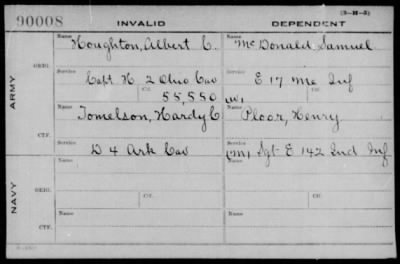 (3-H-5)
90008 INVALID DEPENDENT
Name Houghton, Albert C. Name McDonald, Samuel
ORIG.
Service Capt H 2 Ohio Cav Service E 17 Me Inf
Ctf. 55,550 Ctf.
ARMY
Name Tomelson, Hardy C Name Ploor, Henry
CTF.
Service D 4 Ark Cav Service (M) Sgt E 142 Ind Inf
Name Ctf. Name Ctf.
ORIG.
NAVY
Name Name
CTF.